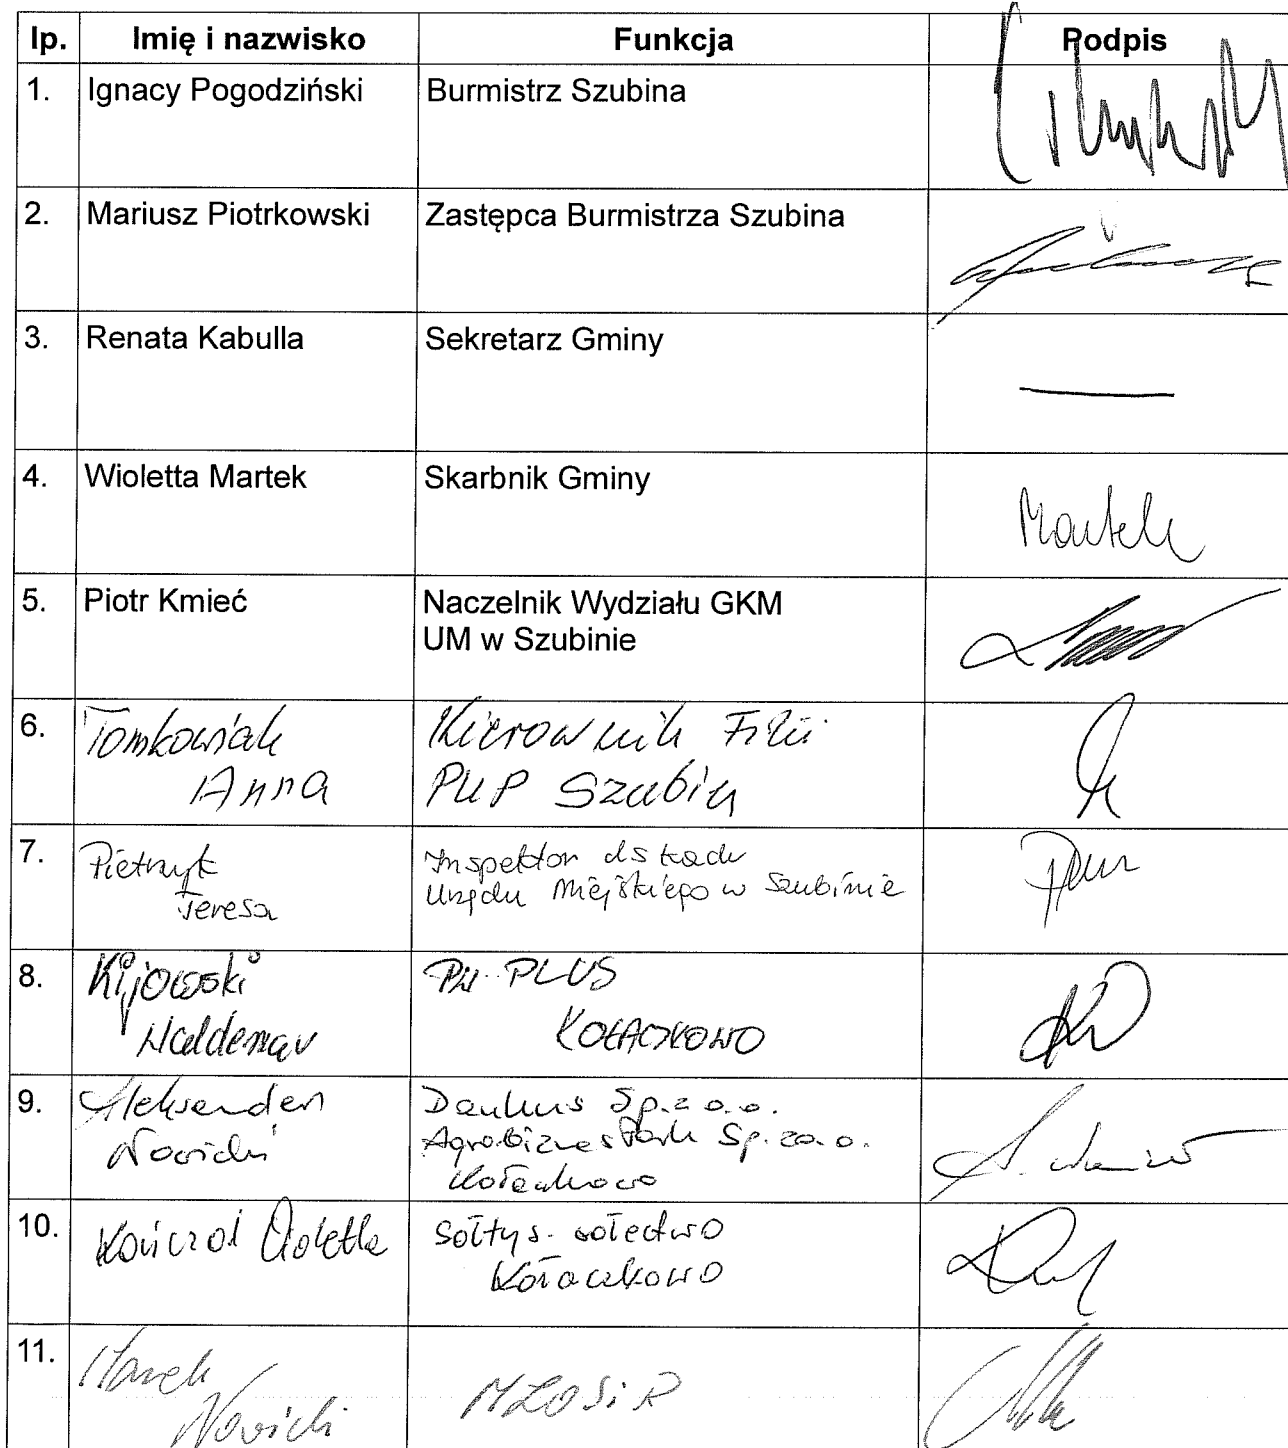 lp. Imię i nazwisko Funkcja Podpis
1. Ignacy Pogodziński Burmistrz Szubina
2. Mariusz Piotrkowski Zastępca Burmistrza Szubina
3. Renata Kabulla Sekretarz Gminy
4. Wioletta Martek Skarbnik Gminy Martek
5. Piotr Kmieć Naczelnik Wydziału GKM
UM w Szubinie
6. Tomkowiak Kierownik Filii
Anna PUP Szubin
7. Pietrzyk Inspektor ds kadr
Teresa Urzędu Miejskiego w Szubinie
8. Kijowski PLUS
Waldemar KOŁACZKOWO
9. Aleksander Sp. z o.o.
Nowicki AgrobiznesPark Sp. zo.o.
Kołaczkowo
10. Violetta Sołtys sołectwo
Kołaczkowo
11. Marek
Nowicki